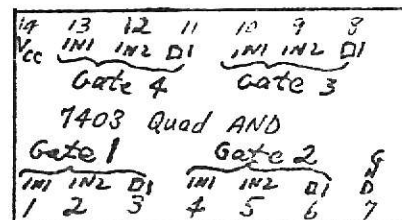 14 13 12 11 10 9 8
Vcc IN1 IN2 D1 IN1 IN2 D1
Gate 4 Gate 3
7403 Quad AND
Gate 1 Gate 2 G
IN1 IN2 D1 IN1 IN2 D1 D
1 2 3 4 5 6 7